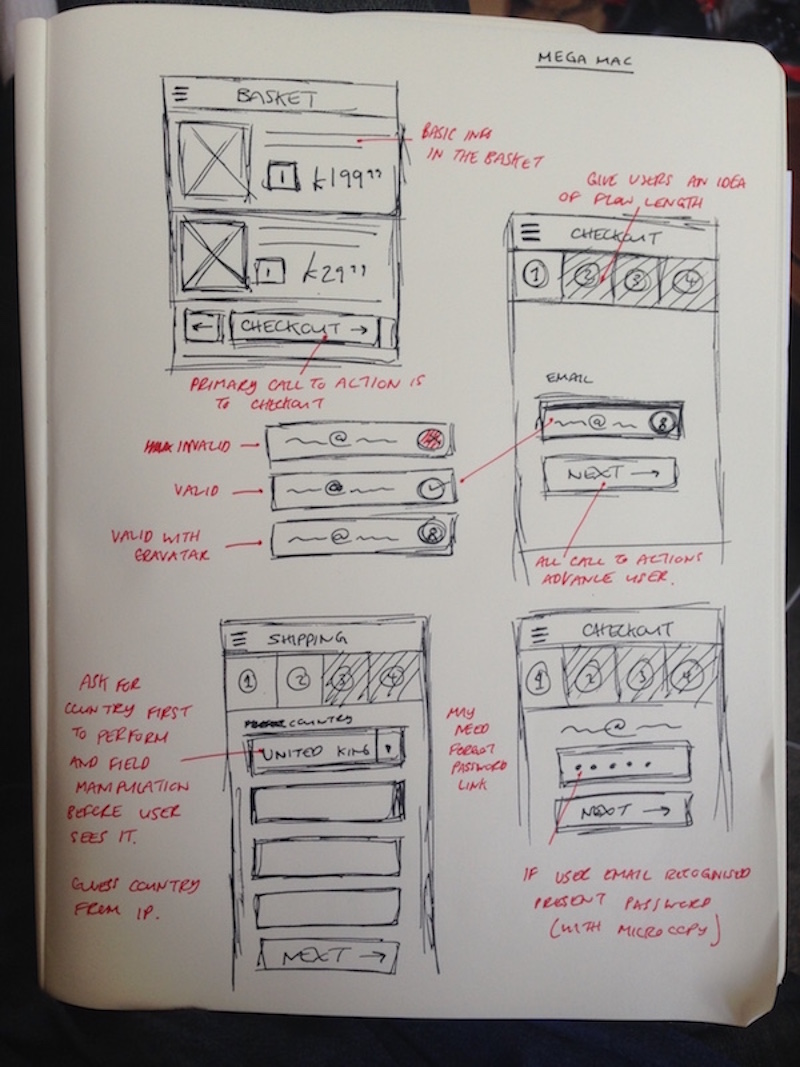 MEGA MAC
BASKET
1 £199.99
1 £29.99
← CHECKOUT →
BASIC INFO
IN THE BASKET
PRIMARY CALL TO ACTION IS
TO CHECKOUT
GIVE USERS AN IDEA
OF FLOW LENGTH
CHECKOUT
1 2 3 4
EMAIL
@
NEXT →
ALL CALL TO ACTIONS
ADVANCE USER.
INVALID
@
VALID
@
VALID WITH
GRAVATAR
@
SHIPPING
1 2 3 4
COUNTRY
UNITED KING
NEXT →
ASK FOR
COUNTRY FIRST
TO PERFORM
AND FIELD
MANIPULATION
BEFORE USER
SEES IT.
GUESS COUNTRY
FROM IP.
MAY
NEED
FORGOT
PASSWORD
LINK
CHECKOUT
1 2 3 4
@
• • • • •
NEXT →
IF USER EMAIL RECOGNISED
PRESENT PASSWORD
(WITH MICROCOPY)